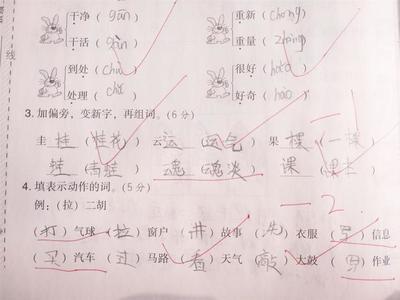 干净（gān） 重新（chóng）
干活（gàn） 重量（zhòng）
到处（chù） 很好（hǎo）
处理（chǔ） 好奇（hào）
线
3. 加偏旁，变新字，再组词。（6分）
圭 桂（桂花） 云 运（运气） 果 棵（一棵）
蛙（青蛙） 魂（魂淡） 课（课本）
4. 填表示动作的词。（5分）
例：（拉）二胡
一2
（打）气球（拉）窗户（讲）故事（洗）衣服（写）信息
（买）汽车（过）马路（看）天气（敲）大鼓（写）作业